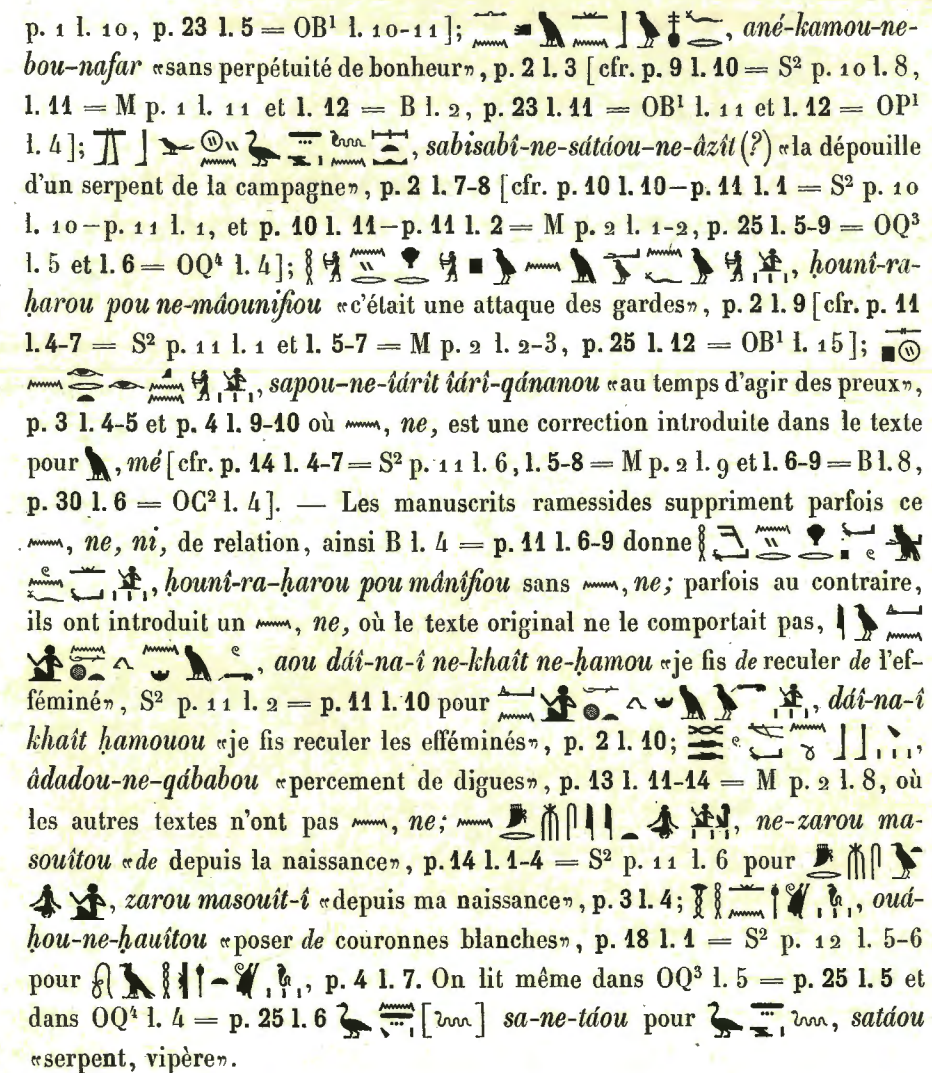 p. 1 l. 10, p. 23 l. 5 = OB¹ l. 10-11]; , ané-kamou-ne-
bou-nafar «sans perpétuité de bonheur», p. 2 l. 3 [cfr. p. 9 l. 10 = S² p. 10 l. 8,
l. 11 = M p. 1 l. 11 et l. 12 = B l. 2, p. 23 l. 11 = OB¹ l. 11 et l. 12 = OP¹
l. 4]; , sabisabî-ne-sátáou-ne-âzît (?) «la dépouille
d'un serpent de la campagne», p. 2 l. 7-8 [cfr. p. 10 l. 10—p. 11 l. 1 = S² p. 10
l. 10—p. 11 l. 1, et p. 10 l. 11—p. 11 l. 2 = M p. 2 l. 1-2, p. 25 l. 5-9 = OQ³
l. 5 et l. 6 = OQ⁴ l. 4]; , ḥounî-ra-
ḥarou pou ne-máounifiou «c'était une attaque des gardes», p. 2 l. 9 [cfr. p. 11
l. 4-7 = S² p. 11 l. 1 et l. 5-7 = M p. 2 l. 2-3, p. 25 l. 12 = OB¹ l. 15];
, sapou-ne-iárît iárî-qánanou «au temps d'agir des preux»,
p. 3 l. 4-5 et p. 4 l. 9-10 où , ne, est une correction introduite dans le texte
pour , mé [cfr. p. 14 l. 4-7 = S² p. 11 l. 6, l. 5-8 = M p. 2 l. 9 et l. 6-9 = B l. 8,
p. 30 l. 6 = OC² l. 4]. — Les manuscrits ramessides suppriment parfois ce
, ne, ni, de relation, ainsi B l. 4 = p. 11 l. 6-9 donne
, ḥounî-ra-ḥarou pou mánîfiou sans , ne; parfois au contraire,
ils ont introduit un , ne, où le texte original ne le comportait pas,
, aou dáî-na-î ne-khaît ne-ḥamou «je fis de reculer de l'ef-
féminé», S² p. 11 l. 2 = p. 11 l. 10 pour , dáî-na-î
khaît ḥamouou «je fis reculer les efféminés», p. 2 l. 10; ,
âdadou-ne-qábabou «percement de digues», p. 13 l. 11-14 = M p. 2 l. 8, où
les autres textes n'ont pas , ne; , ne-zarou ma-
souîtou «de depuis la naissance», p. 14 l. 1-4 = S² p. 11 l. 6 pour
, zarou masouît-î «depuis ma naissance», p. 3 l. 4; , ouá-
ḥou-ne-ḥauîtou «poser de couronnes blanches», p. 18 l. 1 = S² p. 12 l. 5-6
pour , p. 4 l. 7. On lit même dans OQ³ l. 5 = p. 25 l. 5 et
dans OQ⁴ l. 4 = p. 25 l. 6 [ ] sa-ne-táou pour , satáou
«serpent, vipère».